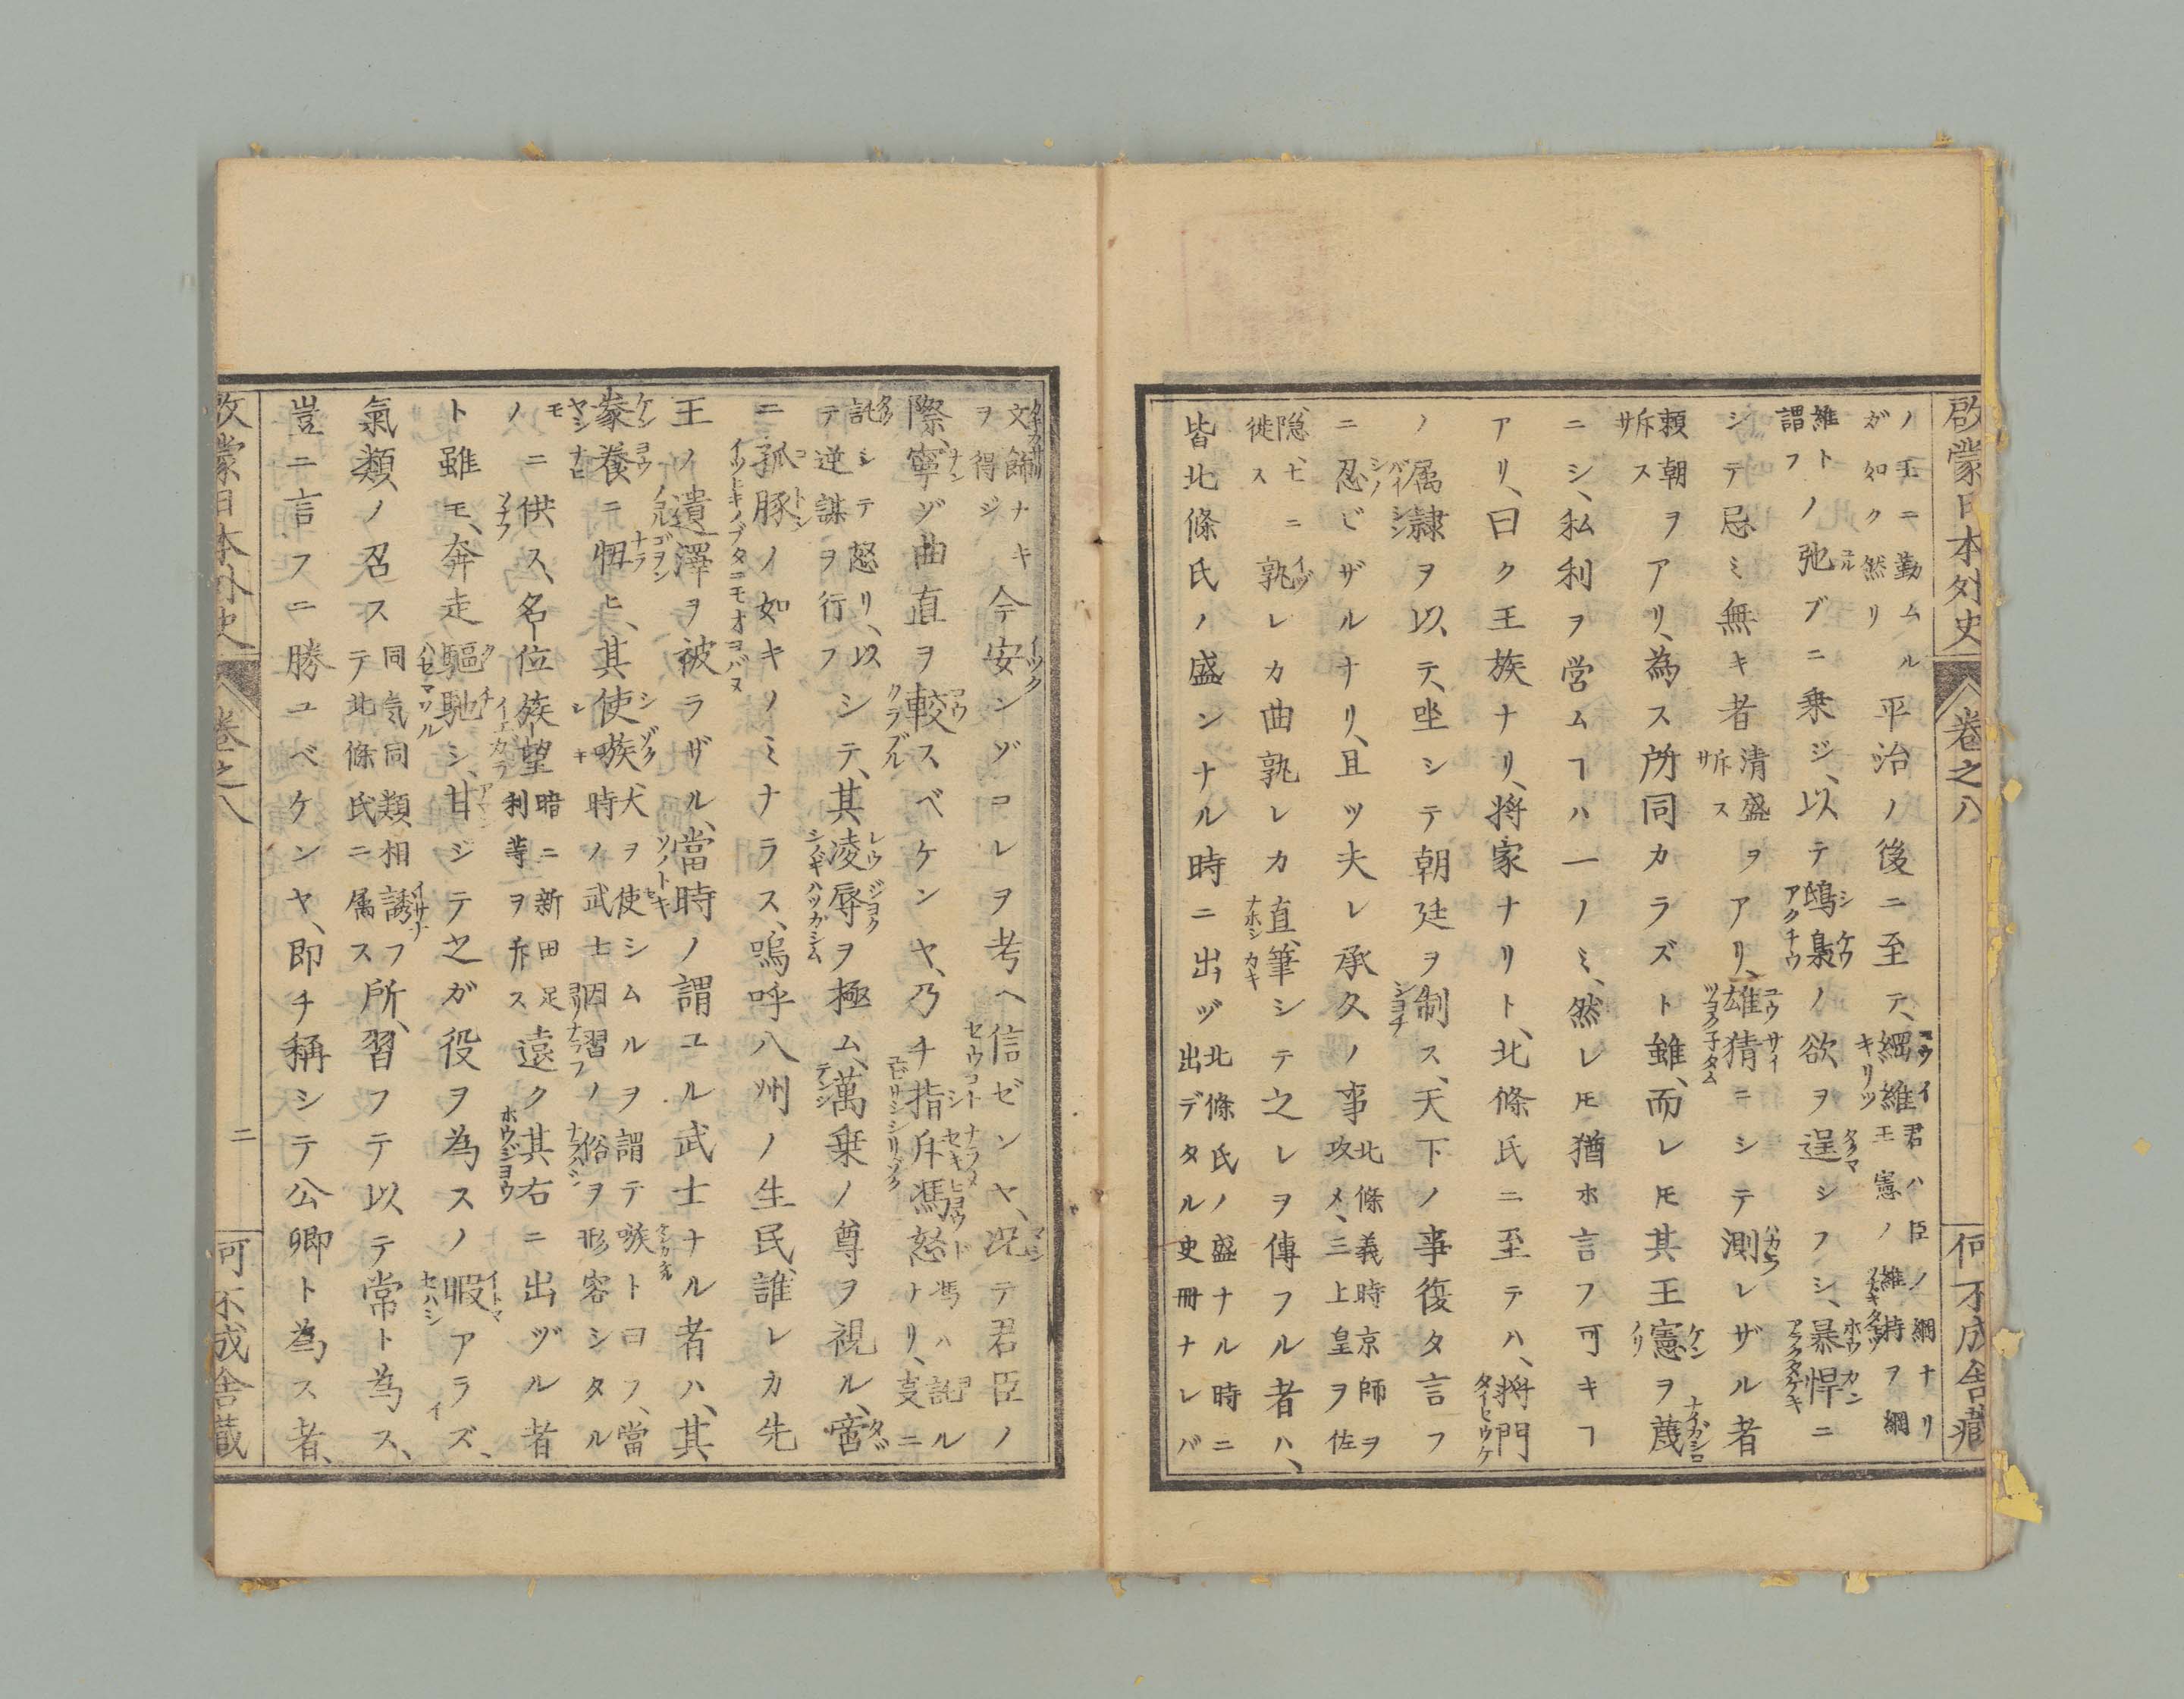 啓蒙日本外史 巻之八 何不成舎藏
ノ王ニ勤ムルガ如ク然リ 平治ノ後ニ至テ、綱維 君ハ臣ノ綱ナリ王憲ノ維持ヲ綱
維ト謂フノ弛ブニ乗ジ、以テ鴟梟ノ欲ヲ逞シフシ、暴悍ニ
シテ忌ミ無キ者 清盛ヲ斥ス アリ、雄猜ニシテ測レザル者
頼朝ヲ斥ス アリ、為ス所同カラズト雖、而レ𪜈其王憲ヲ蔑
ニシ、私利ヲ営ムヿハ一ノミ、然レ𪜈猶ホ言フ可キヿ
アリ、曰ク王族ナリ、将家ナリト、北條氏ニ至テハ、将門
ノ属隷ヲ以、テ、坐シテ朝廷ヲ制ス、天下ノ事復タ言フ
ニ忍ビザルナリ、且ツ夫レ承久ノ事 北條義時京師ヲ攻メ、三上皇ヲ佐
隠、ヒニ徙ス 孰レカ曲孰レカ直、筆シテ之レヲ傳フル者ハ、
皆北條氏ノ盛ンナル時ニ出ヅ 北條氏ノ盛ナル時ニ出デタル史冊ナレバ
文飾ナキヲ得ジ 今安ンゾコレヲ考ヘ信ゼンヤ、况テ君臣ノ
際、寧ゾ曲直ヲ較スベケンヤ、乃チ指斥馮怒 馮ハ訛ル ナリ、支ニ
訛シテ怒リ、以テ逆謀ヲ行フ シテ、其凌辱ヲ極ム、萬乗ノ尊ヲ視ル、啻
ニ孤豚ノ如キノミナラス、嗚呼八州ノ生民、誰レカ先
王ノ遺澤ヲ被ラザル、當時ノ謂ユル武士ナル者ハ、其
豢養ニ狃ヒ、其使嗾 犬ヲ使シムルヲ謂テ嗾ト曰フ、當時ノ武士因習ノ俗ヲ形容シタルモ
ノニ供ス、名位族望 暗ニ新田足利等ヲ斥ス 遠ク其右ニ出ヅル者
ト雖モ、奔走驅馳シ、甘ジテ之ガ役ヲ為スノ暇アラズ、
氣類ノ召ス 同気同類相誘フテ北條氏ニ属ス 所、習フテ以テ常ト為ス、
豈ニ言フニ勝ユベケンヤ、即チ稱シテ公卿ト為ス者、
啓蒙日本外史 巻之八 二 何不成舎藏